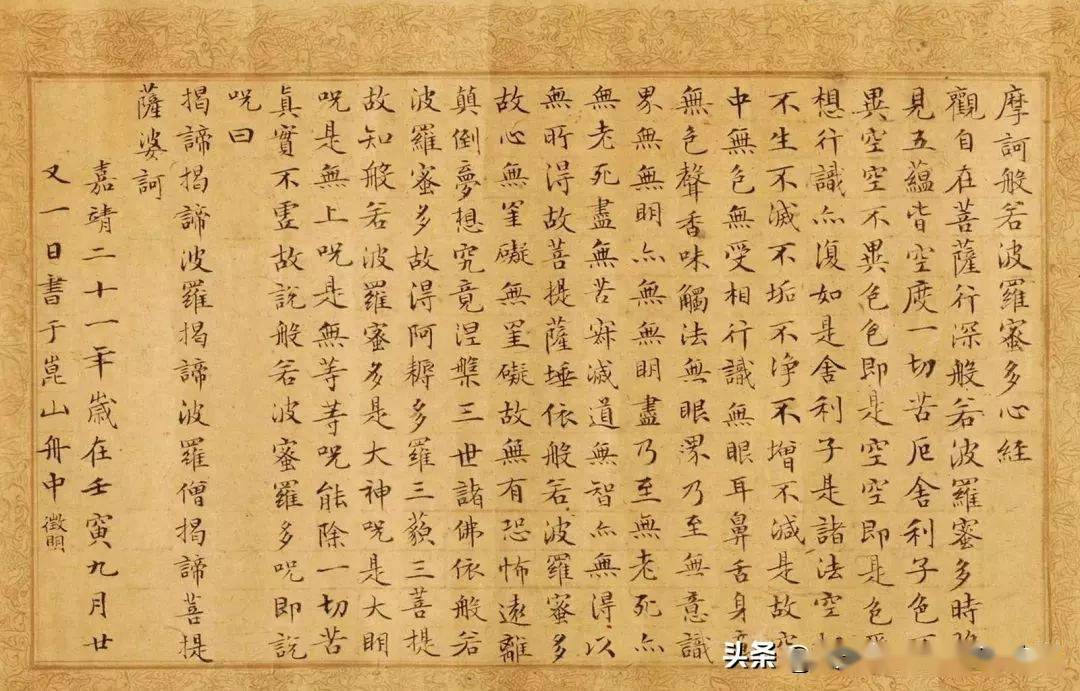 摩訶般若波羅蜜多心経
觀自在菩薩行深般若波羅蜜多時
見五蘊皆空度一切苦厄舍利子色不
異空空不異色色即是空空即是色受
想行識亦復如是舍利子是諸法空相
不生不滅不垢不淨不增不減是故空
中無色無受相行識無眼耳鼻舌身意
無色聲香味觸法無眼界乃至無意識
界無無明亦無無明盡乃至無老死亦
無老死盡無苦寂滅道無智亦無得以
無所得故菩提薩埵依般若波羅蜜多
故心無罣礙無罣礙故無有恐怖遠離
顛倒夢想究竟涅槃三世諸佛依般若
波羅蜜多故得阿耨多羅三藐三菩提
故知般若波羅蜜多是大神咒是大明
咒是無上咒是無等等咒能除一切苦
真實不虛故說般若波蜜羅多咒即說
咒曰
揭諦揭諦波羅揭諦波羅僧揭諦菩提
薩婆訶
嘉靖二十一年歲在壬寅九月廿
又一日書于崑山舟中 徵明
头条